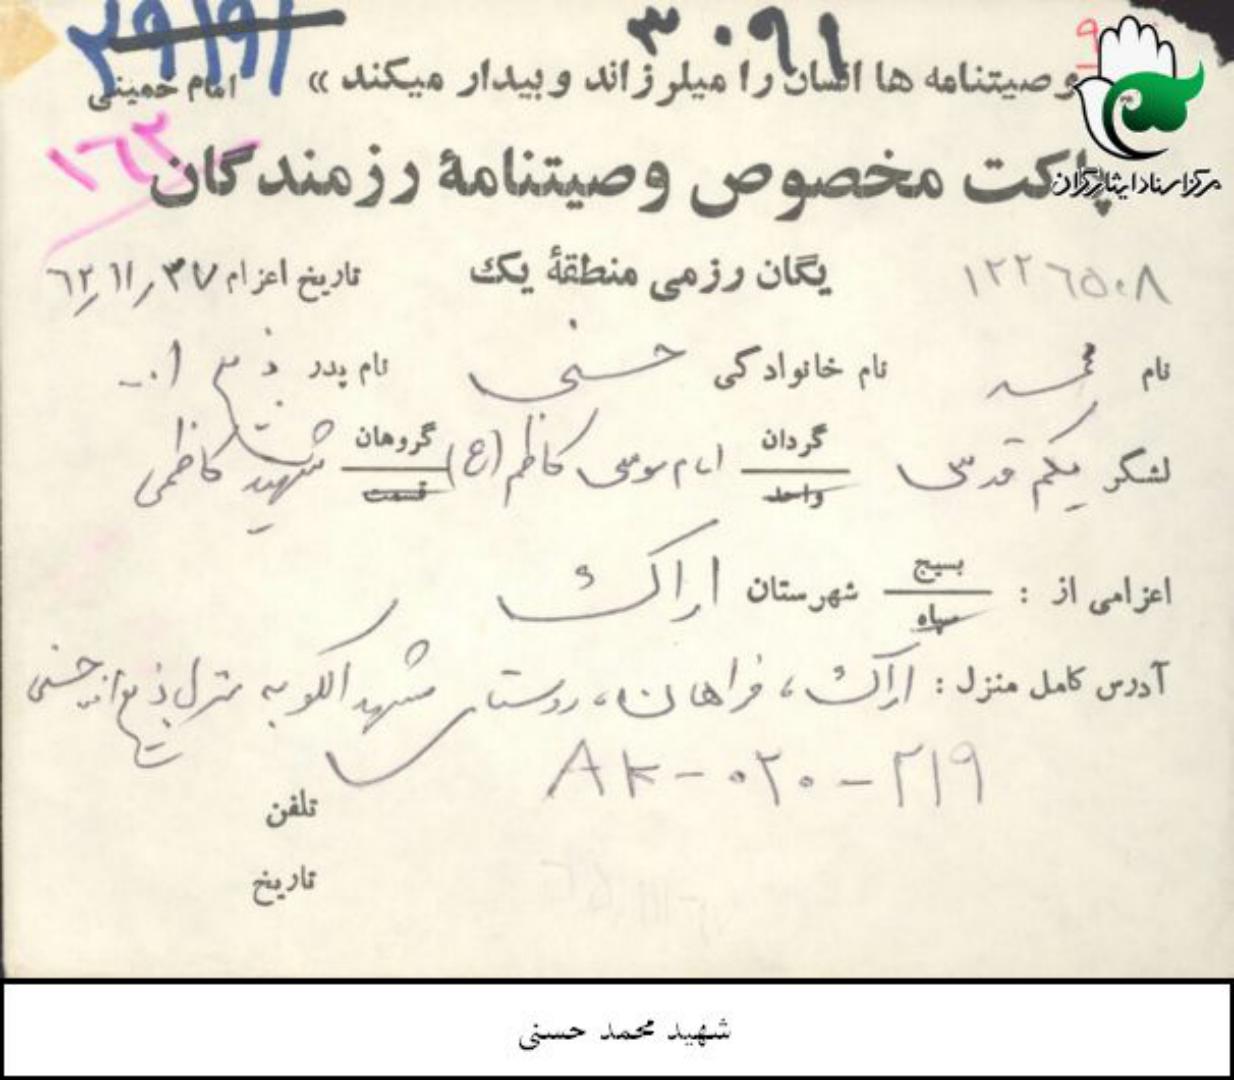 ۲۹۱۹۱ ۳۰۹۱ ۹
وصیتنامه ها انسان را میلرزاند و بیدار میکند » امام خمینی
۱۶۲
پاکت مخصوص وصیتنامهٔ رزمندگان
مرکز اسناد ایثارگران
۱۲۲۶۵۰۸ یگان رزمی منطقهٔ یک تاریخ اعزام ۶۲/۱۱/۲۷
نام محمد نام خانوادگی حسنی نام پدر ذبیح ا...
لشگر یکم قدس گردان واحد امام موسی کاظم (ع) گروهان قسمت شهید کاظمی
اعزامی از : بسیج سپاه شهرستان اراک
آدرس کامل منزل : اراک، فراهان، روستای مشهد الکوبه منزل ذبیح اله حسنی
AK-۰۲۰-۲۱۹
تلفن
تاریخ
شهید محمد حسنی